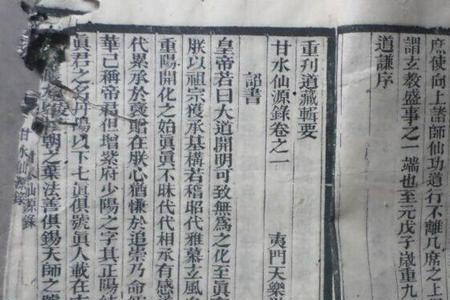 席使向上諸師仙功道行不離几席之上
謂玄教盛事之一端也至元戊子歲重九
道謙序
重刊道藏輯要
甘水仙源錄卷之一
夷門天樂
詔書
皇帝若曰大道開明可致無為之化至真
朕以祖宗獲承基構若稽昭代雅慕玄風
重陽開化之始真真不昧代代相承有感
代累承於褒贈在朕心猶慊於追崇乃命
華已稱帝君但增紫府少陽之字其正陽
真君之名丹陽以下七真俱號真人載在
朝之葉法善俱錫天師之
甘水仙源錄